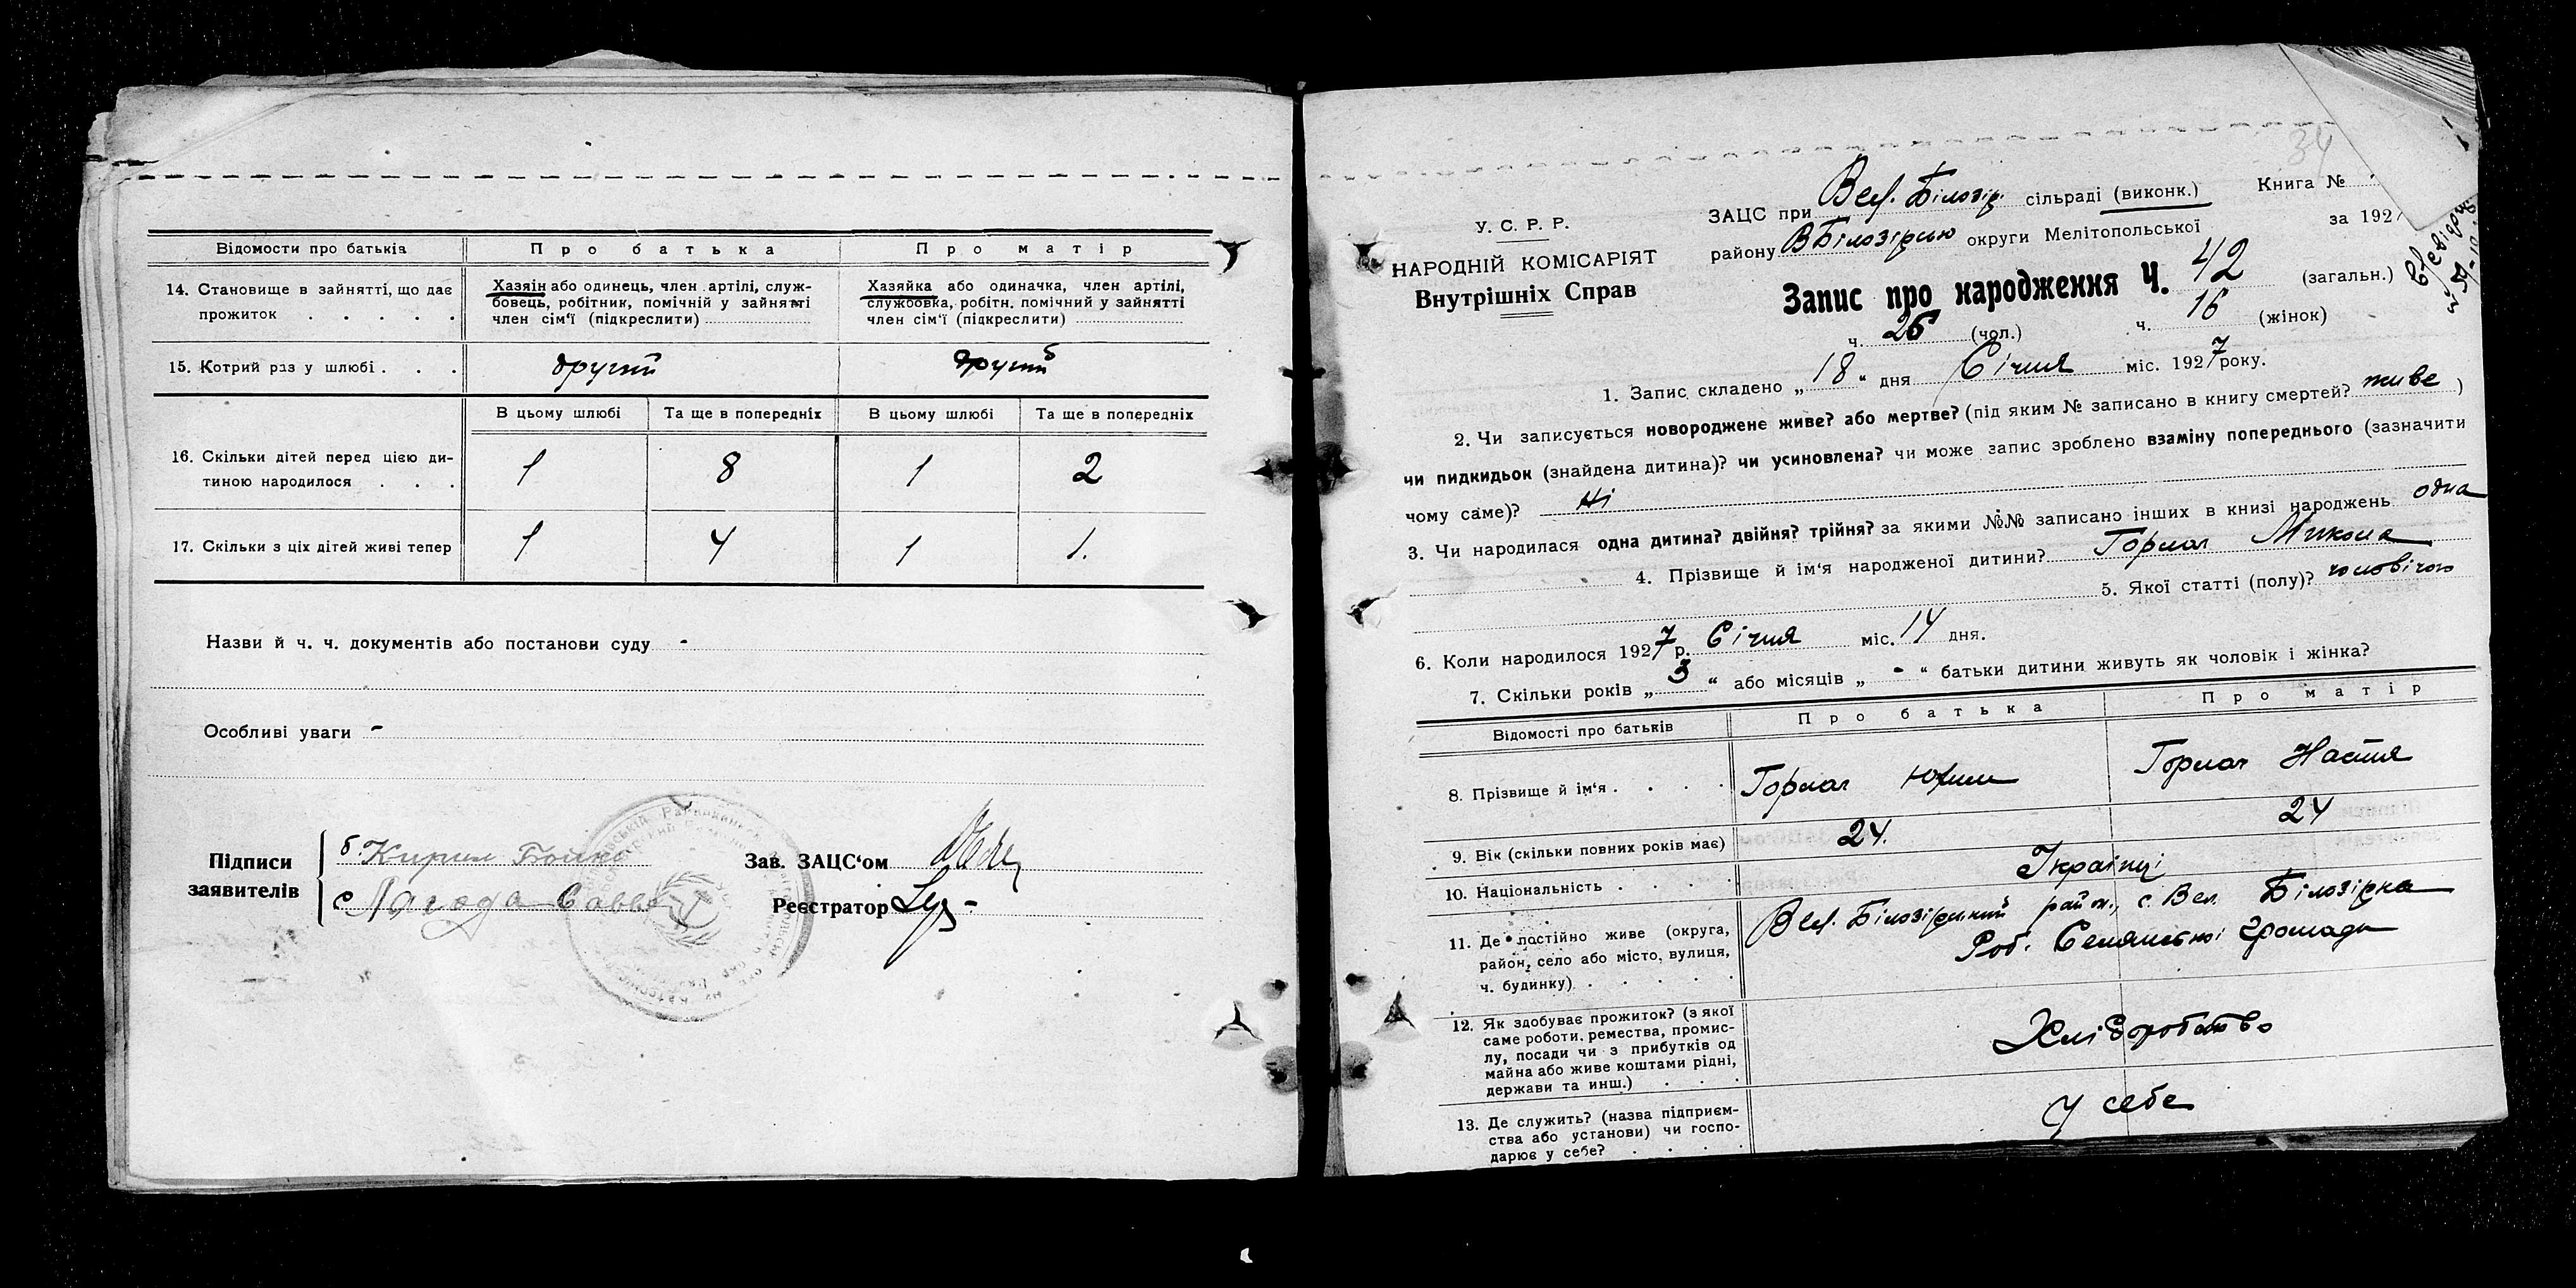 Відомости про батьків
Про батька
Про матір
14. Становище в зайнятті, що дає
прожиток . . . . .
Хазяін або одинець, член артілі, служ-
бовець, робітник, помічній у зайнятті
член сім'ї (підкреслити)
Хазяйка або одиначка, член артілі,
службовка, робітн. помічний у зайнятті
член сім'ї (підкреслити)
15. Котрий раз у шлюбі . . .
другий
другий
В цьому шлюбі
Та ще в попередніх
В цьому шлюбі
Та ще в попередніх
16. Скільки дітей перед цією ди-
тиною народилося . . .
1
8
1
2
17. Скільки з ціх дітей живі тепер
1
4
1
1.
Назви й ч. ч. документів або постанови суду -
Особливі уваги -
Підписи
заявителів
б. Кирил Бойко
с Лагода Савва
Зав. ЗАЦС'ом
Реєстратор
34
У. С. Р. Р.
НАРОДНІЙ КОМІСАРІЯТ
Внутрішніх Справ
ЗАЦС при Вел. Білозір. сільраді (виконк.)
Книга №
району ВБілозірсько округи Мелітопольської
за 192
Запис про народження Ч. 42 (загальн.)
ч. 26 (чол.) ч. 16 (жінок)
1. Запис складено „18“ дня Січня міс. 1927 року.
2. Чи записується новороджене живе? або мертве? (під яким № записано в книгу смертей? живе )
чи пидкидьок (знайдена дитина)? чи усиновлена? чи може запис зроблено взаміну попереднього (зазначити
чому саме)? Ні
3. Чи народилася одна дитина? двійня? трійня? за якими №№ записано інших в книзі народжень одна
4. Прізвище й ім'я народженої дитини? Горлач Микола
5. Якої статті (полу)? чоловічою
6. Коли народилося 1927 р. Січня міс. 14 дня.
7. Скільки років „3“ або місяців „-“ батьки дитини живуть як чоловік і жінка?
Відомості про батьків
Про батька
Про матір
8. Прізвище й ім'я . . . .
Горлач Юхим
Горлач Настя
9. Вік (скільки повних років має)
24.
24
10. Національність . . . .
Українці
11. Де постійно живе (округа,
район, село або місто, вулиця,
ч. будинку) . . . . .
Вел. Білозірський район., с. Вел. Білозірка
Роб. Селянської громади
12. Як здобуває прожиток? (з якої
саме роботи, ремества, промис-
лу, посади чи з прибутків од
майна або живе коштами рідні,
держави та инш.) . . .
Хліборобство
13. Де служить? (назва підприєм-
ства або установи) чи госпо-
дарює у себе? . . . .
У себе